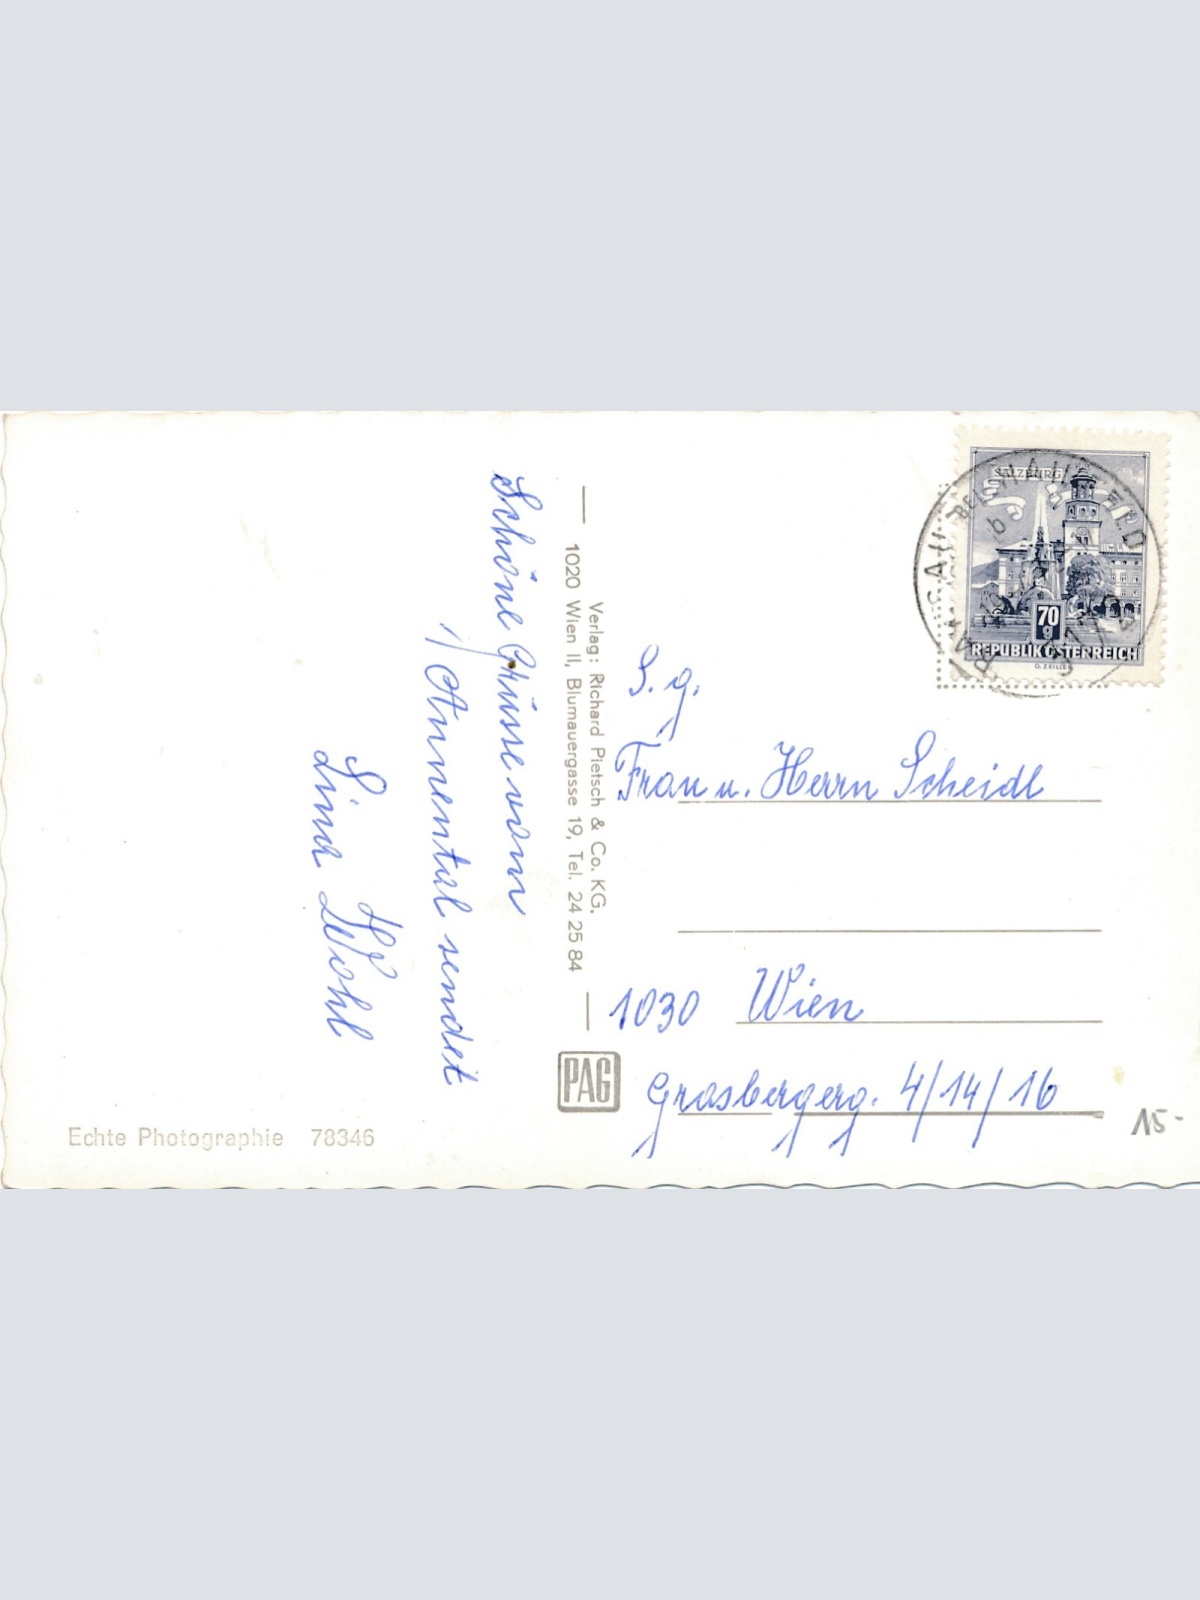 Schöne Grüsse vom
Annental sendet
Lina Wohl
Verlag: Richard Pietsch & Co. KG,
1020 Wien II, Blumauergasse 19, Tel. 24 25 84
PAG
Echte Photographie 78346
SALZBURG
70
g
REPUBLIK ÖSTERREICH
O. ZEILLER
S. g.
Frau u. Herrn Scheidl
1030 Wien
Grasbergerg. 4/14/16
15-